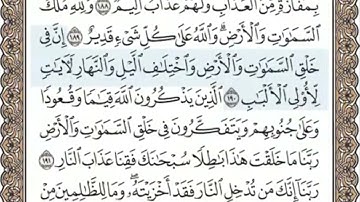 بِمَفَازَةٍ مِّنَ ٱلْعَذَابِ وَلَهُمْ عَذَابٌ أَلِيمٌ ١٨٨ وَلِلَّهِ مُلْكُ
ٱلسَّمَٰوَٰتِ وَٱلْأَرْضِ وَٱللَّهُ عَلَىٰ كُلِّ شَىْءٍ قَدِيرٌ ١٨٩ إِنَّ فِى
خَلْقِ ٱلسَّمَٰوَٰتِ وَٱلْأَرْضِ وَٱخْتِلَٰفِ ٱلَّيْلِ وَٱلنَّهَارِ لَءَايَٰتٍ
لِّأُو۟لِى ٱلْأَلْبَٰبِ ١٩٠ ٱلَّذِينَ يَذْكُرُونَ ٱللَّهَ قِيَٰمًا وَقُعُودًا
وَعَلَىٰ جُنُوبِهِمْ وَيَتَفَكَّرُونَ فِى خَلْقِ ٱلسَّمَٰوَٰتِ وَٱلْأَرْضِ
رَبَّنَا مَا خَلَقْتَ هَٰذَا بَٰطِلًا سُبْحَٰنَكَ فَقِنَا عَذَابَ ٱلنَّارِ ١٩١
رَبَّنَآ إِنَّكَ مَن تُدْخِلِ ٱلنَّارَ فَقَدْ أَخْزَيْتَهُۥ وَمَا لِلظَّٰلِمِينَ مِنْ